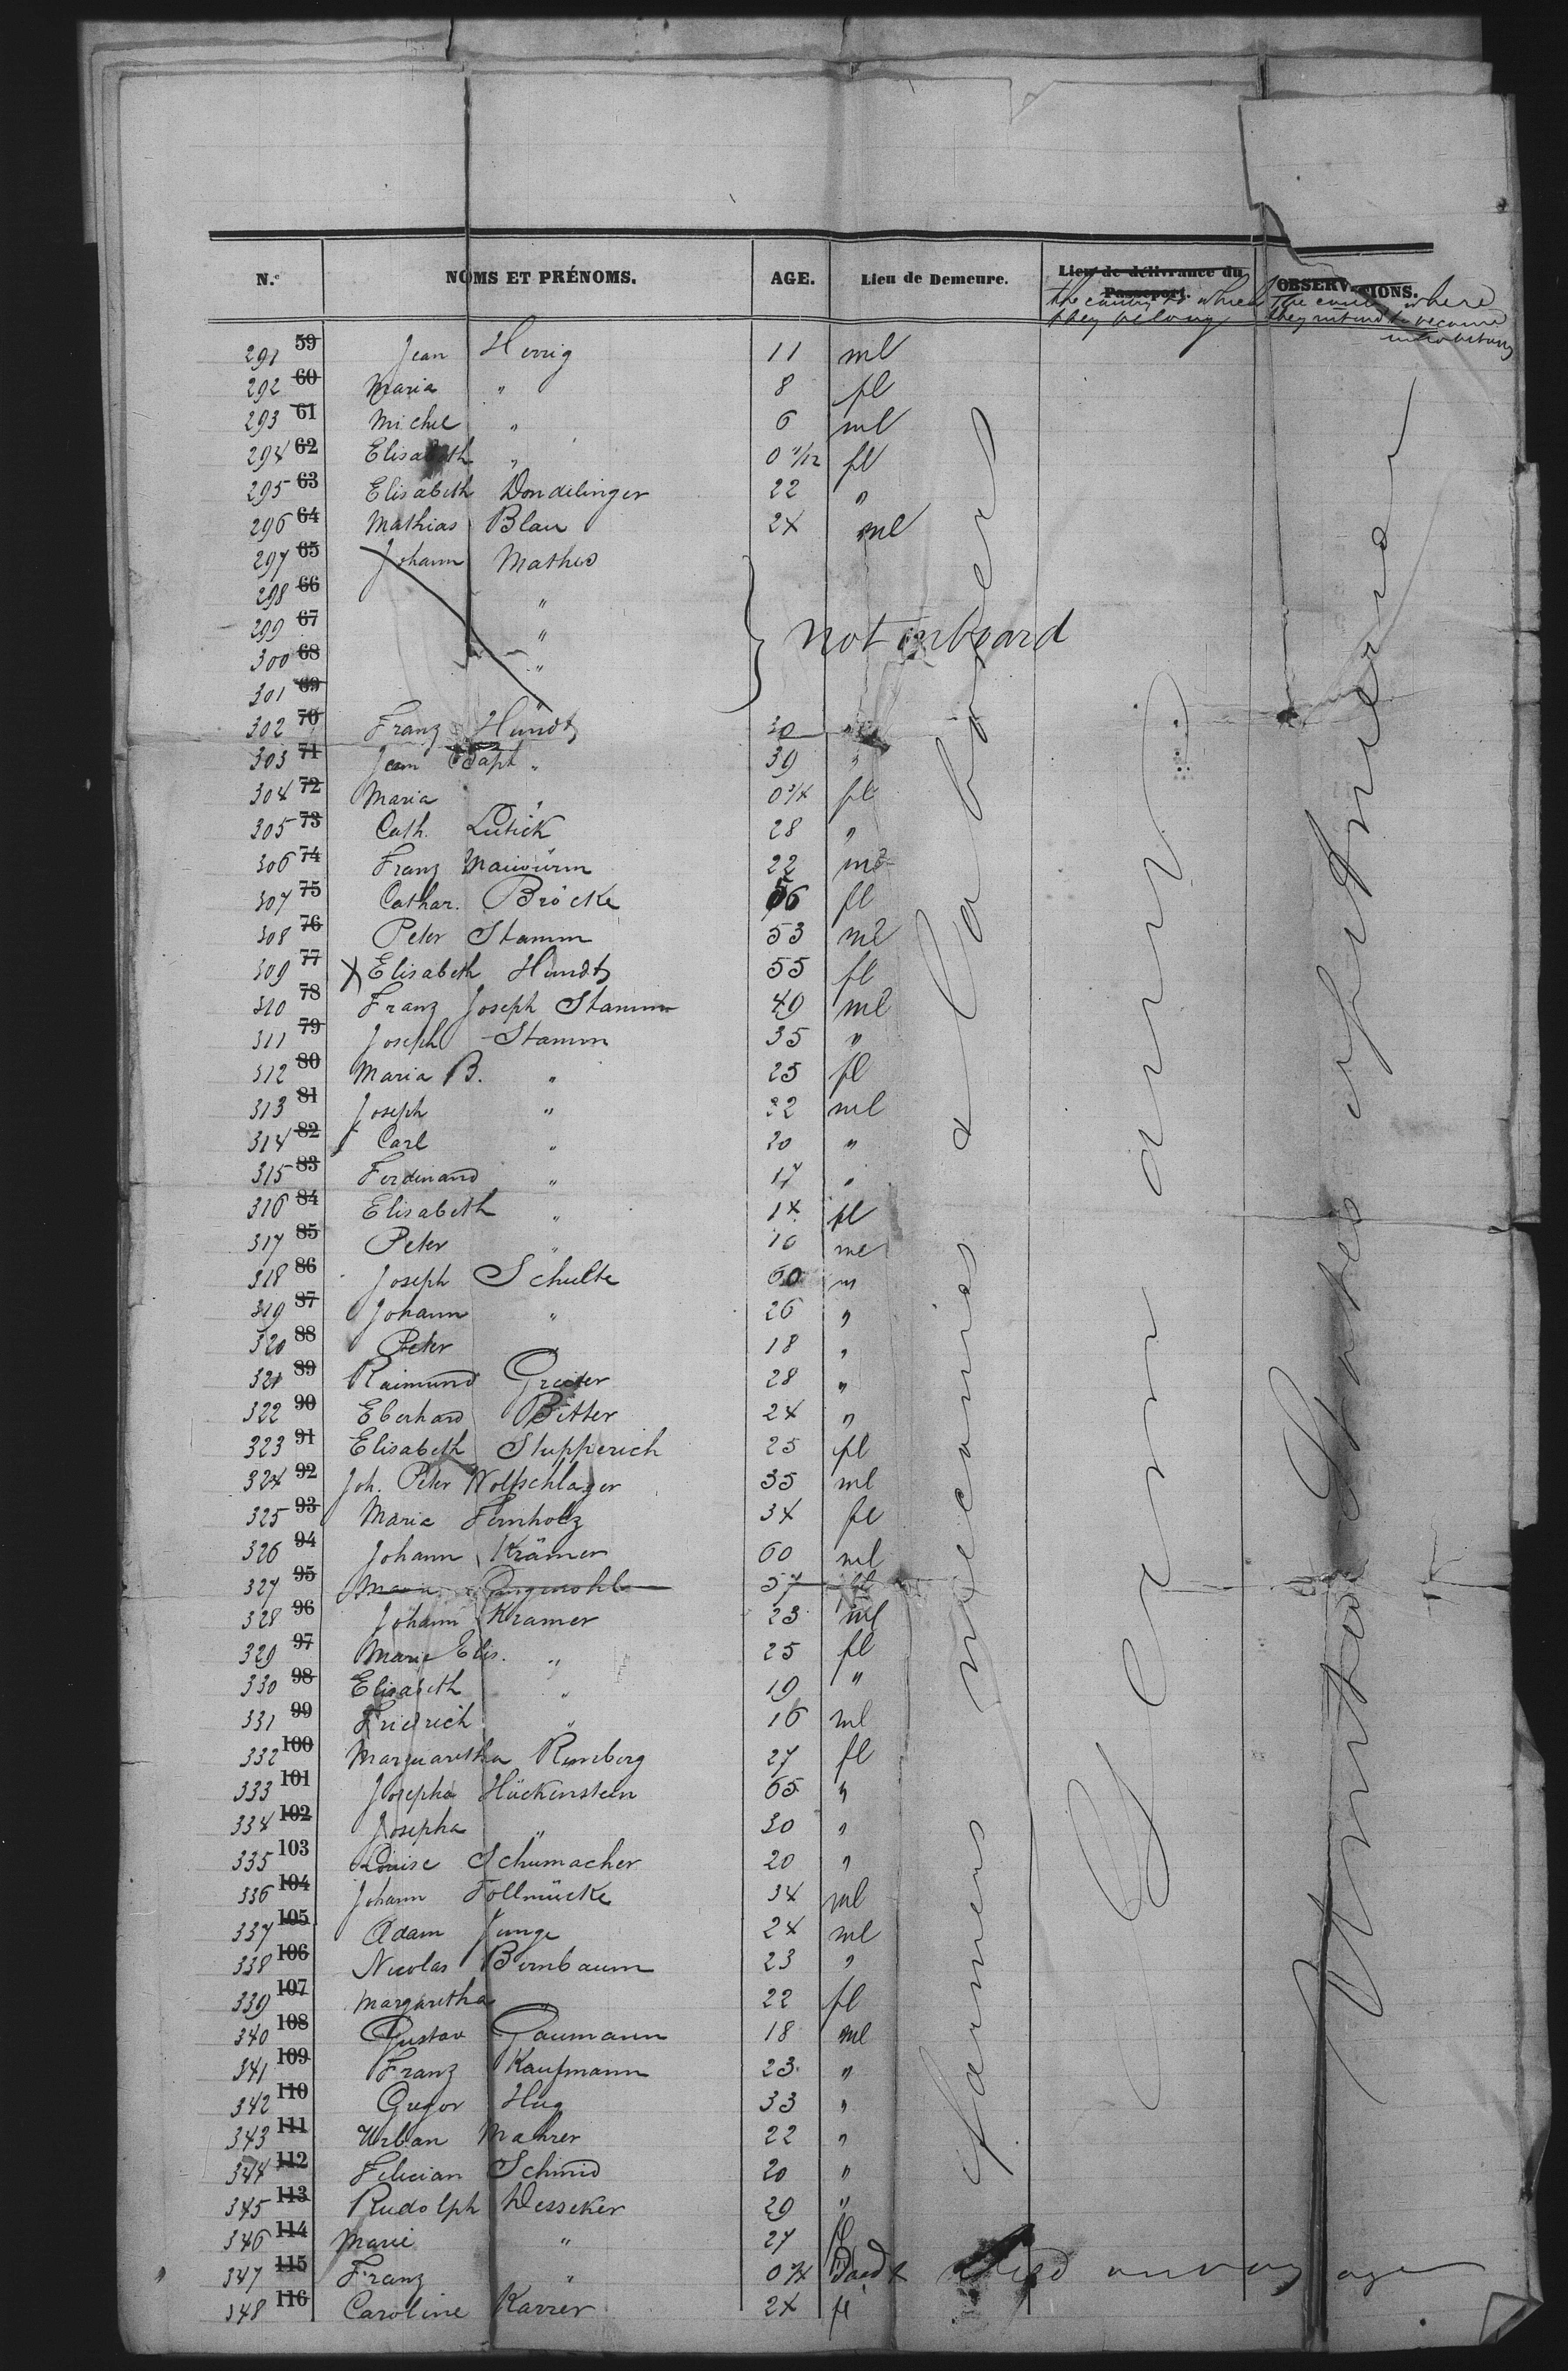 N.º NOMS ET PRÉNOMS. AGE. Lieu de Demeure. Lieu de délivrance du Passeport. OBSERVATIONS.
the country to which they belong
The country where they intend to become inhabitants
291 59 Jean Herrig 11 ml
292 60 Maria " 8 fl
293 61 Michel " 6 ml
294 62 Elisabeth " 0 11/12 fl
295 63 Elisabeth Dondelinger 22 "
296 64 Mathias Blau 24 ml
297 65 Johann Matheo
298 66 "
299 67 "
300 68 "
301 69
not onboard
302 70 Franz Hündt 30 "
303 71 Jean Bapt " 39 "
304 72 Maria " 0 3/4 fl
305 73 Cath. Lutick 28 "
306 74 Franz Mauwürm 22 ml
307 75 Cathar. Bröcke 56 fl
308 76 Peter Stamm 53 ml
309 77 X Elisabeth Hundt 55 fl
310 78 Franz Joseph Stamm 49 ml
311 79 Joseph Stamm 35 "
312 80 Maria B. " 25 fl
313 81 Joseph " 22 ml
314 82 Carl " 20 "
315 83 Ferdinand " 17 "
316 84 Elisabeth " 14 fl
317 85 Peter " 10 ml
318 86 Joseph Schulte 60 "
319 87 Johann " 26 "
320 88 Peter " 18 "
321 89 Raimund Greiter 28 "
322 90 Eberhard Bitter 24 "
323 91 Elisabeth Stupperich 25 fl
324 92 Joh. Peter Wolfschlager 35 ml
325 93 Maria Fernholz 34 fl
326 94 Johann Krämer 60 ml
327 95 Maria 57 fl
328 96 Johann Kramer 23 ml
329 97 Marie Elis. " 25 fl
330 98 Elisabeth " 19 "
331 99 Fridrich " 16 ml
332 100 Marguaretha Runeberg 27 fl
333 101 Josepha Hückenstein 65 "
334 102 Josepha " 30 "
335 103 Louise Schumacher 20 "
336 104 Johann Follmücke 34 ml
337 105 Adam Junge 24 ml
338 106 Nicolas Birnbaum 23 "
339 107 Margaretha " 22 fl
340 108 Gustav Gaumann 18 ml
341 109 Franz Kaufmann 23 "
342 110 Gregor Hug 33 "
343 111 Urban Mahrer 22 "
344 112 Felician Schmid 20 "
345 113 Rudolph Wesseker 29 "
346 114 Marie " 27 fl
347 115 Franz " Dead died on voyage
348 116 Caroline Karrer 24 fl
farmers mecanies & labourers
Germany
United States of America